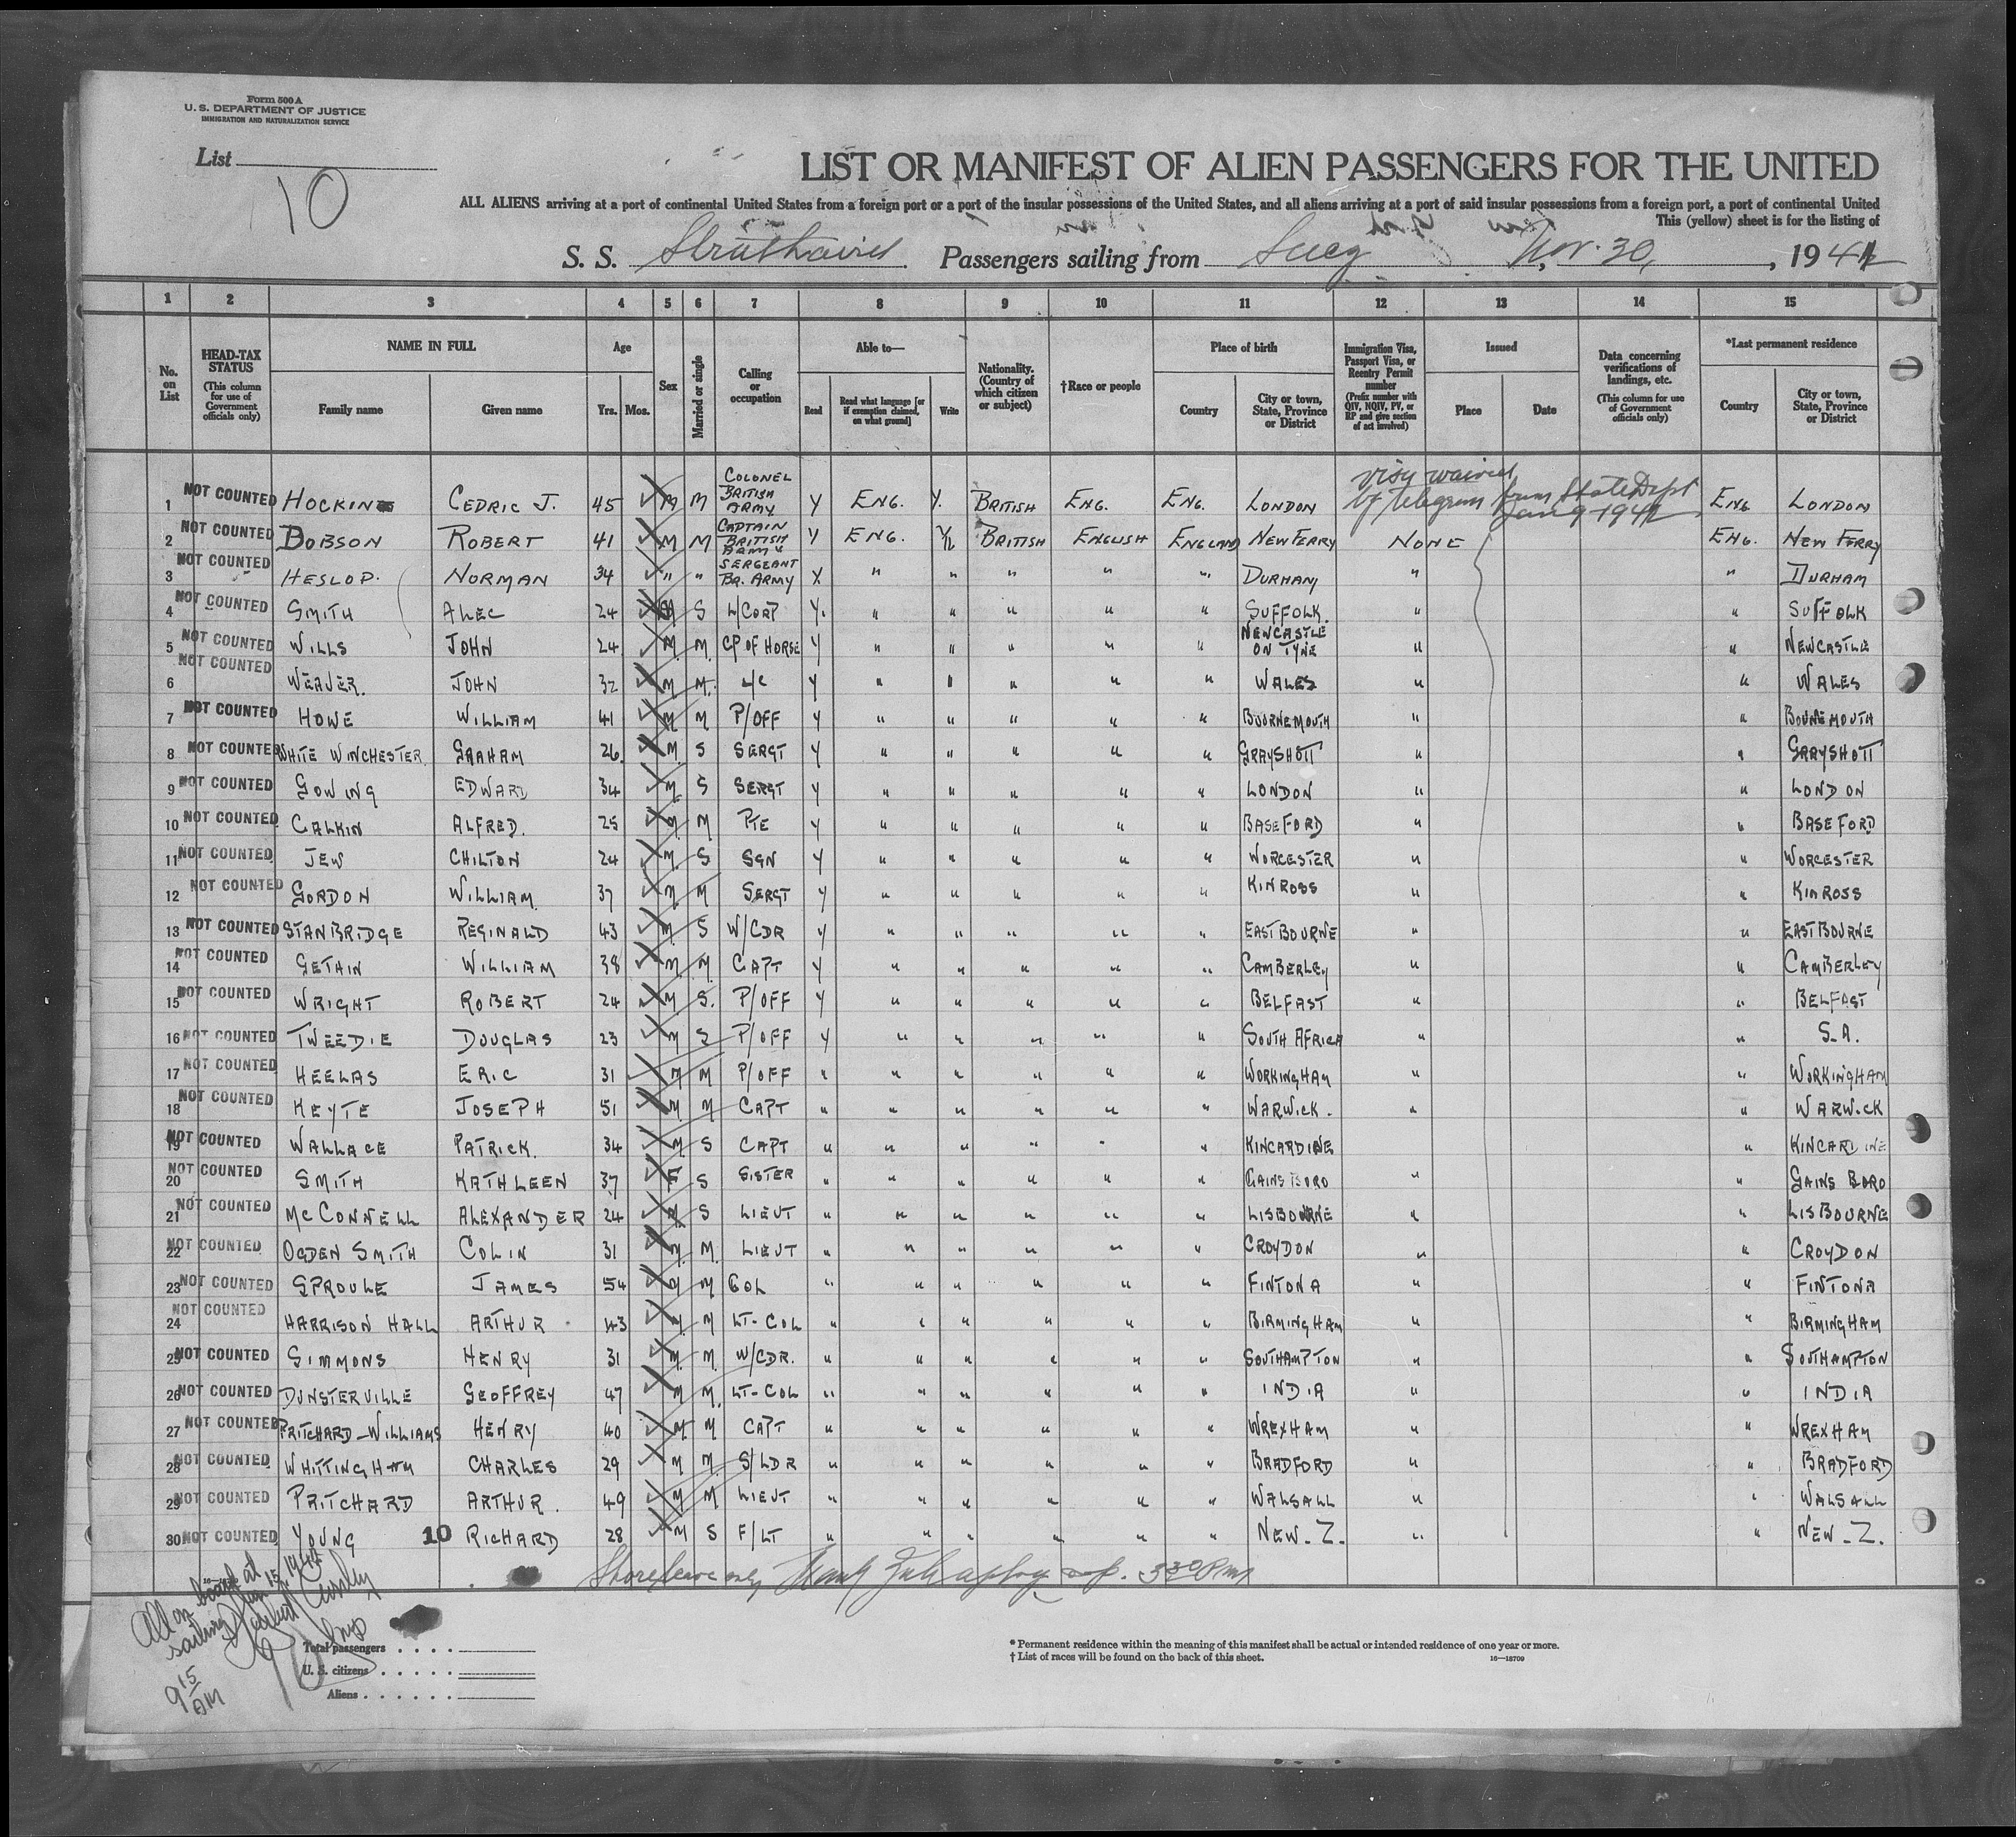 Form 500 A
U. S. DEPARTMENT OF JUSTICE
IMMIGRATION AND NATURALIZATION SERVICE
List
10
LIST OR MANIFEST OF ALIEN PASSENGERS FOR THE UNITED
ALL ALIENS arriving at a port of continental United States from a foreign port or a port of the insular possessions of the United States, and all aliens arriving at a port of said insular possessions from a foreign port, a port of continental United
This (yellow) sheet is for the listing of
S. S. Strathaird Passengers sailing from Suez Nov. 30, , 1941
1 2 3 4 5 6 7 8 9 10 11 12 13 14 15
No. on List
HEAD-TAX STATUS (This column for use of Government officials only)
NAME IN FULL Family name Given name
Age Yrs. Mos.
Sex
Married or single
Calling or occupation
Able to— Read Read what language [or if exemption claimed, on what ground] Write
Nationality. (Country of which citizen or subject)
†Race or people
Place of birth Country City or town, State, Province or District
Immigration Visa, Passport Visa, or Reentry Permit number (Prefix number with QIV, NQIV, PV, or RP and give section of act involved)
Issued Place Date
Data concerning verifications of landings, etc. (This column for use of Government officials only)
*Last permanent residence Country City or town, State, Province or District
visa waived
by telegram from State Dept
Jan 9 1942
1 NOT COUNTED HOCKIN CEDRIC J. 45 M M COLONEL BRITISH ARMY Y ENG. Y. BRITISH ENG. ENG. LONDON ENG LONDON
2 NOT COUNTED DOBSON ROBERT 41 M M CAPTAIN BRITISH ARMY Y ENG. BRITISH ENGLISH ENGLAND NEW FERRY NONE ENG. NEW FERRY
3 NOT COUNTED HESLOP. NORMAN 34 " " SERGEANT BR. ARMY Y " " " " " DURHAM " " DURHAM
4 NOT COUNTED SMITH ALEC 24 M S L/CORP Y. " " " " " SUFFOLK. " " SUFFOLK
5 NOT COUNTED WILLS JOHN 24 M. M. CP OF HORSE Y " " " " " NEWCASTLE ON TYNE " " NEWCASTLE
6 NOT COUNTED WEAVER. JOHN 32 M M. L/C Y " " " " " WALES " " WALES
7 NOT COUNTED HOWE WILLIAM 41 M M P/OFF Y " " " " " BOURNEMOUTH " " BOURNEMOUTH
8 NOT COUNTED WHITE WINCHESTER. GRAHAM 26. M S SERGT Y " " " " " GRAYSHOTT " " GRAYSHOTT
9 NOT COUNTED GOWING EDWARD 34 M. S SERGT Y " " " " " LONDON " " LONDON
10 NOT COUNTED CALKIN ALFRED. 25 M. M PTE Y " " " " " BASEFORD " " BASEFORD
11 NOT COUNTED JEW CHILTON 24 M. S SGN Y " " " " " WORCESTER " " WORCESTER
12 NOT COUNTED GORDON WILLIAM. 37 M. M SERGT Y " " " " " KINROSS " " KINROSS
13 NOT COUNTED STANBRIDGE REGINALD 43 M. S W/CDR Y " " " " " EASTBOURNE " " EASTBOURNE
14 NOT COUNTED GETHIN WILLIAM 38 M M. CAPT Y " " " " " CAMBERLEY " " CAMBERLEY
15 NOT COUNTED WRIGHT ROBERT 24 M S. P/OFF Y " " " " " BELFAST " " BELFAST
16 NOT COUNTED TWEEDIE DOUGLAS 23 M S P/OFF Y " " " " " SOUTH AFRICA " " S.A.
17 NOT COUNTED HEELAS ERIC 31 M M P/OFF " " " " " " WORKINGHAM " " WORKINGHAM
18 NOT COUNTED KEYTE JOSEPH 51 M M CAPT " " " " " " WARWICK. " " WARWICK
19 NOT COUNTED WALLACE PATRICK. 34 M. S CAPT " " " " " " KINCARDINE " KINCARDINE
20 NOT COUNTED SMITH KATHLEEN 37 F S SISTER " " " " " " GAINSBORO " " GAINS BORO
21 NOT COUNTED McCONNELL ALEXANDER 24 M. S LIEUT " " " " " " LISBOURNE " " LISBOURNE
22 NOT COUNTED OGDEN SMITH COLIN 31 M. M. LIEUT " " " " " " CROYDON " " CROYDON
23 NOT COUNTED SPROULE JAMES 54 M M COL " " " " " " FINTONA " " FINTONA
24 NOT COUNTED HARRISON HALL ARTHUR 43 M. M LT-COL " " " " " " BIRMINGHAM " " BIRMINGHAM
25 NOT COUNTED SIMMONS HENRY 31 M. M. W/CDR. " " " " " " SOUTHAMPTON " " SOUTHAMPTON
26 NOT COUNTED DUNSTERVILLE GEOFFREY 47 M M. LT-COL " " " " " " INDIA " " INDIA
27 NOT COUNTED PRITCHARD-WILLIAMS HENRY 40 M. M CAPT " " " " " " WREXHAM " " WREXHAM
28 NOT COUNTED WHITTINGHAM CHARLES 29 M M. S/LDR " " " " " " BRADFORD " " BRADFORD
29 NOT COUNTED PRITCHARD ARTHUR. 49 M M LIEUT " " " " " " WALSALL " " WALSALL
30 NOT COUNTED YOUNG 10 RICHARD 28 M S F/LT " " " " " " NEW-Z. " " NEW-Z.
Shore leave only 3 30 Pm
All on board at
sailing Jan 15, 1942
Insp
9 15 AM
Total passengers
U. S. citizens
Aliens
* Permanent residence within the meaning of this manifest shall be actual or intended residence of one year or more.
† List of races will be found on the back of this sheet.
16—18709